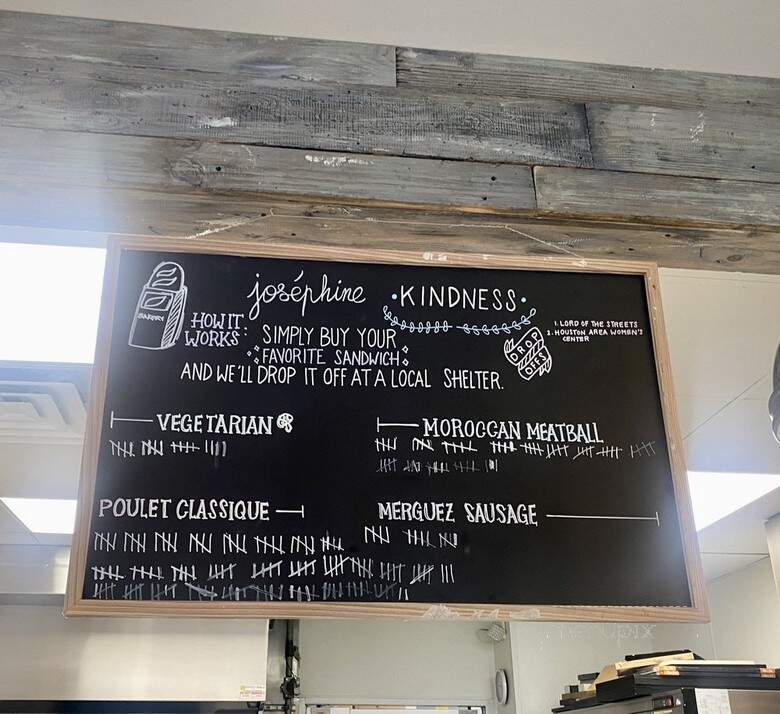 joséphine •KINDNESS•
BAKERY
HOW IT WORKS:
SIMPLY BUY YOUR
FAVORITE SANDWICH
AND WE'LL DROP IT OFF AT A LOCAL SHELTER.
DROP
OFFS
1. LORD OF THE STREETS
2. HOUSTON AREA WOMEN'S
CENTER
VEGETARIAN
MOROCCAN MEATBALL
POULET CLASSIQUE
MERGUEZ SAUSAGE